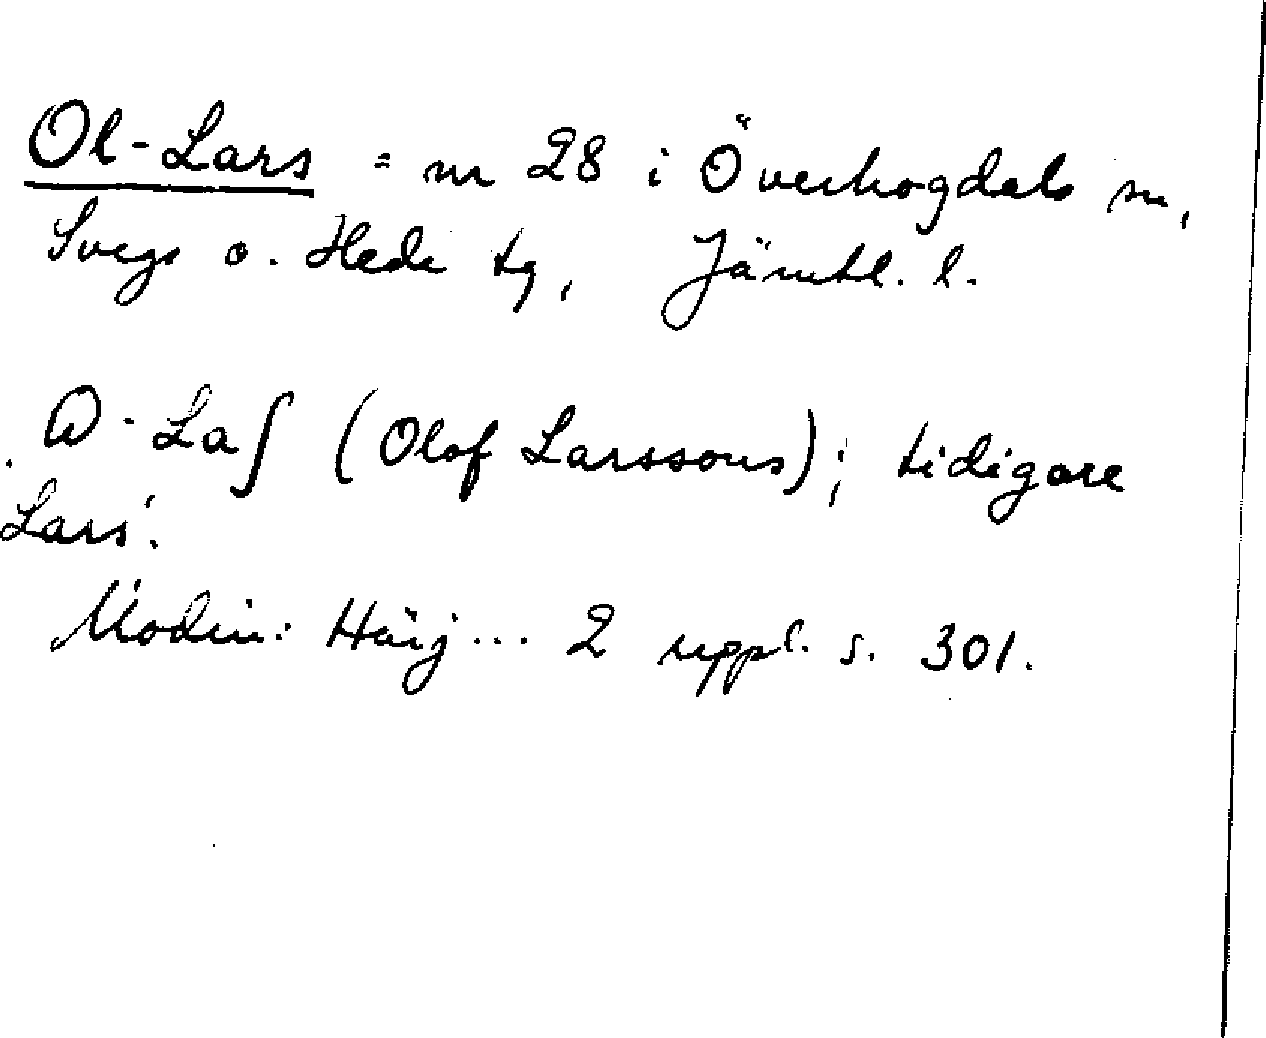 Ol-Lars = nr 28 i Överhogdals sn,
Svegs o. Hede tg, Jämtl. l.
Ω-Laʃ (Olof Larssons); tidigare
Lars'.
Modin: Härj... 2 uppl. s. 301.